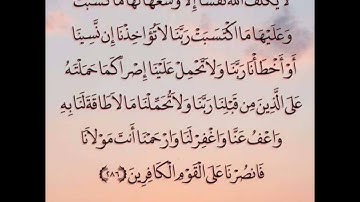 لَا يُكَلِّفُ اللَّهُ نَفْسًا إِلَّا وُسْعَهَا لَهَا مَا كَسَبَتْ
وَعَلَيْهَا مَا اكْتَسَبَتْ رَبَّنَا لَا تُؤَاخِذْنَا إِن نَّسِينَا
أَوْ أَخْطَأْنَا رَبَّنَا وَلَا تَحْمِلْ عَلَيْنَا إِصْرًا كَمَا حَمَلْتَهُ
عَلَى الَّذِينَ مِن قَبْلِنَا رَبَّنَا وَلَا تُحَمِّلْنَا مَا لَا طَاقَةَ لَنَا بِهِ
وَاعْفُ عَنَّا وَاغْفِرْ لَنَا وَارْحَمْنَا أَنتَ مَوْلَانَا
فَانصُرْنَا عَلَى الْقَوْمِ الْكَافِرِينَ ﴿٢٨٦﴾